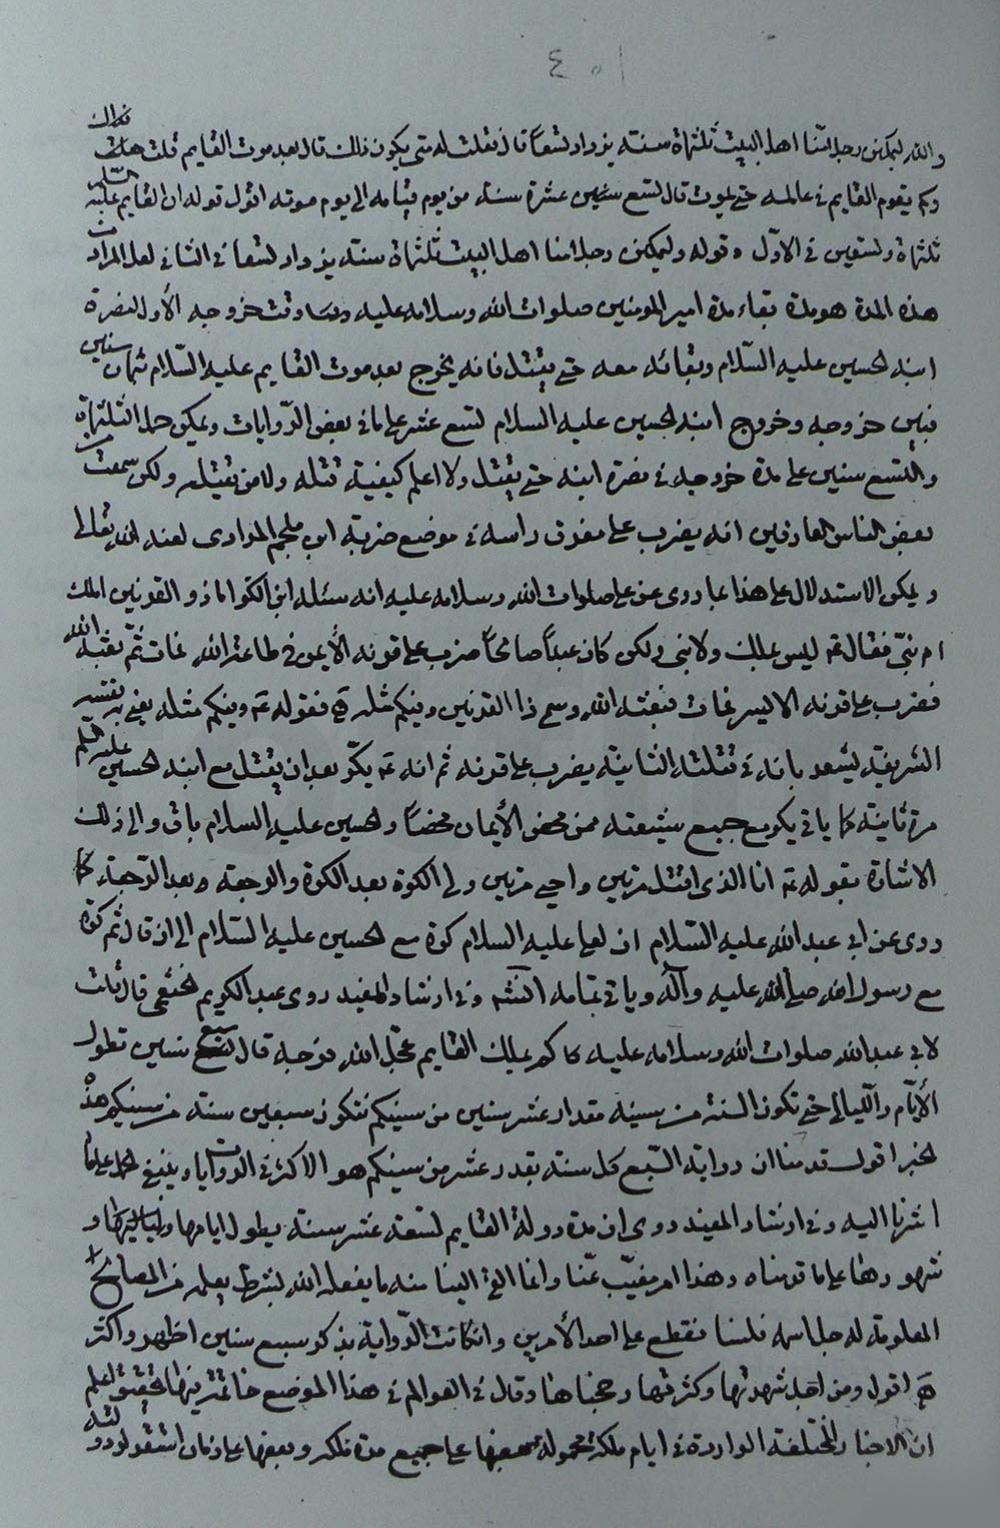 ٤٠١
والله ليملكن رجل منا اهل البيت ثلثماة سنة يزداد تسعاً قال فقلت له متى يكون ذلك قال بعد موت القايم قلت
وكم يقوم القايم في عالمه حتى يموت قال تسع عشرة سنة من يوم قيامه الى يوم موته اقول قوله ان القايم عليه السلام
ثلثماة وتسعين في الاول وقوله وليملكن رجل منا اهل البيت ثلثماة سنة يزداد تسعا في الثاني لعل المراد
هذه المدة هو مدة بقاء مدة امير المومنين صلوات الله وسلامه عليه وقت خروجه الأول لنصرة
ابنه الحسين عليه السلام وبقائه معه حتى يقتل فانه يخرج بعد موت القايم عليه السلام ثمان سنين
فبين خروجه وخروج ابنه الحسين عليه السلام تسع عشر على ما في بعض الروايات ويمكن حمل الثلثماة
والتسع سنين على مدة خروجه في نصرة ابنه حتى يقتل ولا اعلم كيفية قتله ولا من يقتله ولكن سمعت
بعض الناس العارفين انه يضرب على مفرق راسه في موضع ضربة ابن ملجم المرادى لعنه الله تعالى
ويمكن الاستدلال على هذا بما روى عن على صلوات الله وسلامه عليه انه سئله ابن الكوا ما ذو القرنين املك
ام نبي فقال ع ليس بملك ولا نبي ولكن كان عبداً صالحاً ضرب على قرنه الأيمن في طاعة الله فمات ثم بعثه الله
فضرب على قرنه الايسر فمات فبعثه الله وسمى ذا القرنين وفيكم مثله ه فقوله ع وفيكم مثله يعنى به نفسه
الشريفة يشعر بانه في قتلته الثانية يضرب على قرنه ثم انه ع يكر بعد ان يقتل مع ابنه الحسين عليه السلم
مرة ثانية كما ياتى يكر مع جميع شيعته ممن محض الأيمان محضاً والحسين عليه السلام باق والى ذلك
الاشارة بقوله ع انا الذى اقتل مرتين واحيى مرتين ولى الكرة بعد الكرة والرجعة بعد الرجعة كما
روى عن ابى عبد الله عليه السلام ان لعلى عليه السلام كرة مع الحسين عليه السلام الى ان قال ثم كرة
مع رسول الله صلى الله عليه وآله وياتى تمامه انشه وفى ارشاد المفيد روى عبد الكريم الخثعمى قال قلت
لابى عبد الله صلوات الله وسلامه عليه كم يملك القايم عجل الله فرجه قال سبع سنين تطول
الأيّام والليالى حتى تكون السنة من سنيه مقدار عشر سنين من سنيكم فتكون سبعين سنة من سنيكم هذه
الخبر اقول قدمنا ان رواية السبع كل سنة بقدر عشر من سنيكم هو الاكثر في الروايات وينبغى الحمل على ما
اشرنا اليه وفى ارشاد المفيد روى ان مدة دولة القايم تسعة عشر سنة يطول ايامها ولياليها و
شهورها على ما قدمناه وهذا امر مغيّب عنّا وانما القى الينا منه ما يفعله الله بشرط يعلمه من المصالح
المعلومة له جل اسمه فلسنا نقطع على احد الأمرين وان كانت الرواية بذكر سبع سنين اظهر واكثر
ه اقول ومن اجل شهرتها وكثرتها رجحناها وقال فى العوالم في هذا الموضع خاتمة فيها تحقيق اعلم
ان الاخبار المختلفة الواردة في ايام ملكه محمولة بعضها على جميع مدة ملكه وبعضها على زمان استقرار دولته